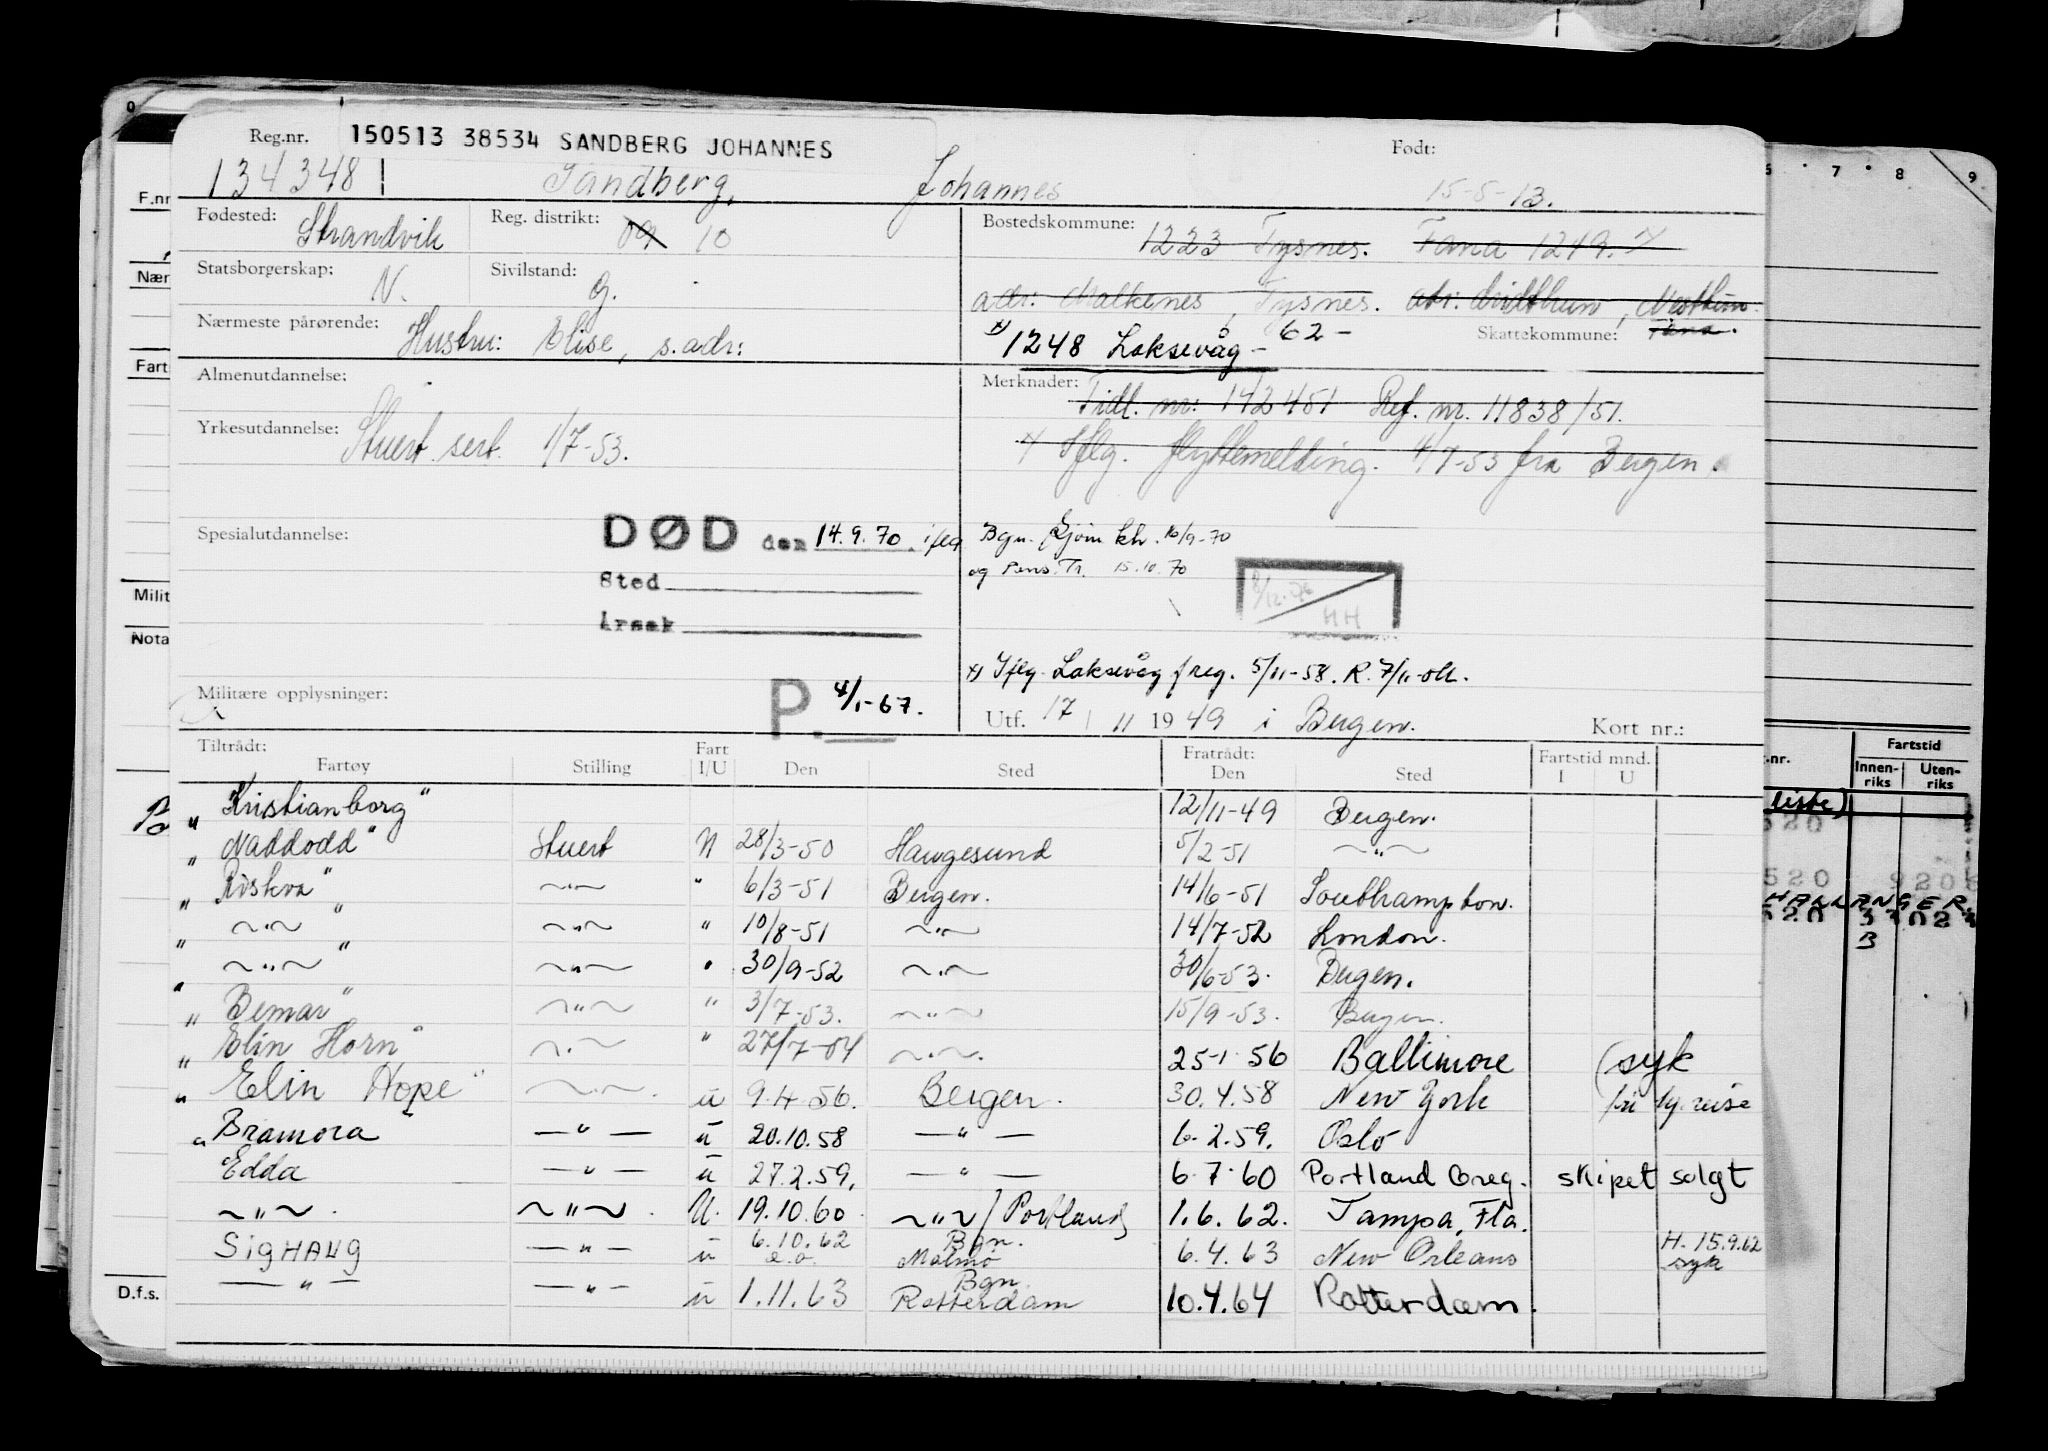 Reg.nr. 150513 38534 SANDBERG JOHANNES Født:
134348 Sandberg, Johannes 15-5-13.
Fødested: Strandvik Reg. distrikt: 09 10 Bostedskommune: 1223 Tysnes. Fana 1249.
Statsborgerskap: N. Sivilstand: g. adr: Tysnes. adr: Nesttun.
Nærmeste pårørende: Hustru: Elise, s. adr: x) 1248 Laksevåg - 62 - Skattekommune: Fana.
Almenutdannelse: Merknader: Tidl. nr: 142451 Ref. nr. 11838/51.
Yrkesutdannelse: Stuert sert. 1/7-53. x Iflg. flyttemelding. 4/7-53 fra Bergen.
Spesialutdannelse: DØD den 14.9.70. iflg Bgn. Gjøm kh. 16/9-70
Sted og Pens. Tr. 15.10.70
8/12-76
HH
Årsak
x) Iflg. Laksevåg freg. 5/11-58. R. 7/11-
Militære opplysninger: P. 4/1-67. Utf. 17/11 1949 i Bergen. Kort nr.:
Tiltrådt: Fratrådt:
Fartøy Stilling Fart I/U Den Sted Den Sted Fartstid mnd. I U
" "Kristianborg" 12/11-49 Bergen.
" Naddodd" Stuert N 28/3-50 Haugesund 5/2-51 ~"~
" Riskva" ~"~ " 6/3-51 Bergen. 14/6-51 Southampton.
" ~"~ " ~"~ " 10/8-51 ~"~ 14/7-52 London.
" ~"~ " ~"~ " 30/9-52 ~"~ 30/6-53. Bergen.
" Bemar" ~"~ " 3/7-53. ~"~ 15/9-53. Bergen.
" Elin Horn" ~"~ " 27/7-54 ~"~. 25-1-56 Baltimore (syk
" Elin Hope" ~"~. u 9.4.56. Bergen. 30.4.58 New York fri hj. reise
" Bramora —"— u 20.10.58 —"— 6.2.59. Oslo
Edda —"— u 27.2.59. —"— 6.7.60 Portland Oreg. skipet solgt
~"~. ~"~. U. 19.10.60. ~"~ / Portland 1.6.62. Tampa, Fla.
SIGHAUG —"— u 6.10.62 Bgn. Malmø 6.4.63 New Orleans H. 15.9.62 syk
—"— —"— u 1.11.63 Bgn. Rotterdam 10.4.64 Rotterdam.
F.nr
Nær
Fart
Milit
Nota
D.f.s.
0
7 8 9
.nr. Fartstid
Innen-riks Uten-riks
liste)
520
520 920
HALLANGER
520
B